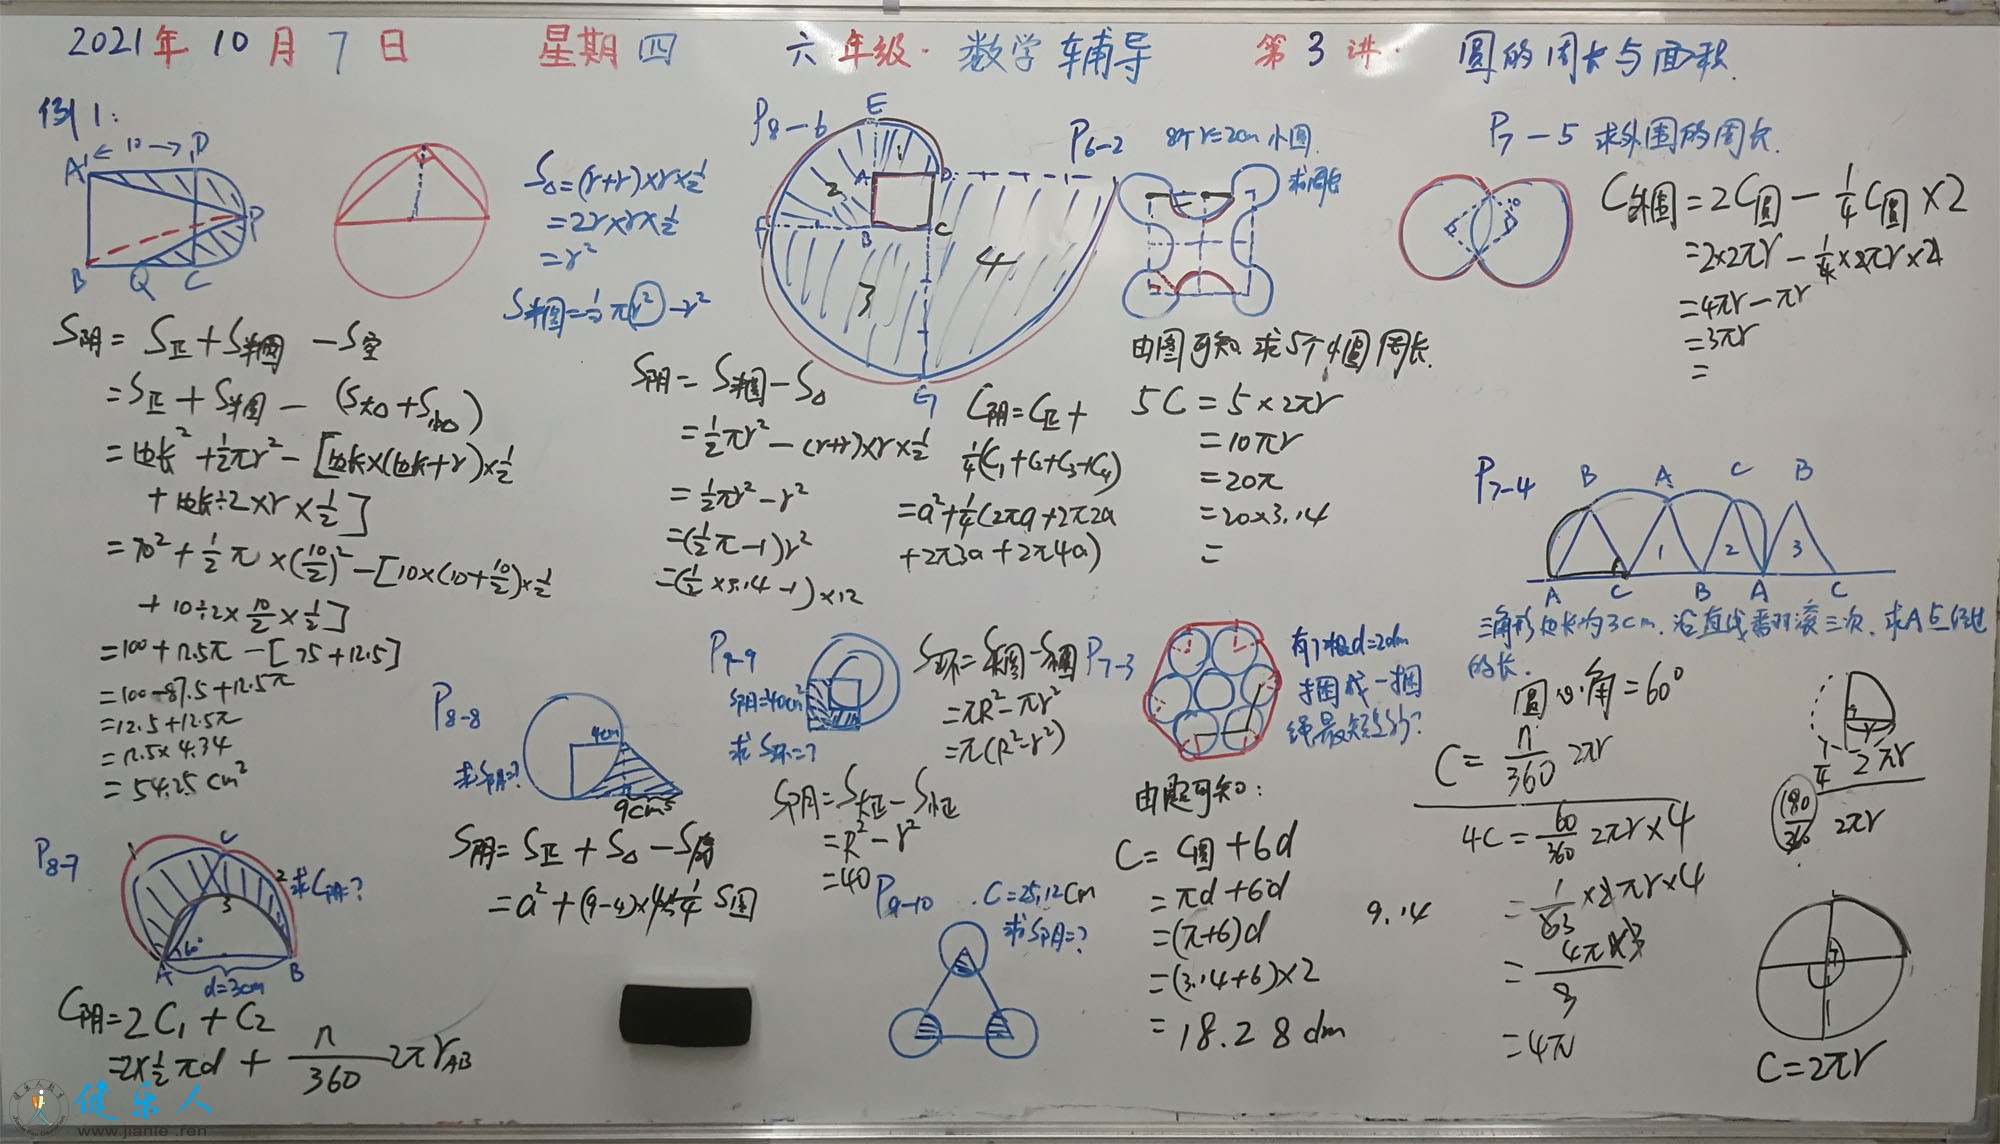 2021年10月7日 星期四 六年级·数学辅导 第3讲· 圆的周长与面积
例1:
←10→
A D
P
B Q C
S阴= S正+S半圆 -S空
=S正+S半圆-(S大△+S小△)
=边长²+½πr²-[边长×(边长+r)×½
+边长÷2×r×½]
=10²+½π×(10/2)²-[10×(10+10/2)×½
+10÷2×10/2×½]
=100+12.5π-[75+12.5]
=100-87.5+12.5π
=12.5+12.5π
=12.5×4.34
=54.25cm²
S△=(r+r)×r×½
=2r×r×½
=r²
S半圆=½πr²-r²
P8-6
E
1
2
A D
F B C
3 4
G
S阴=S半圆-S△
=½πr²-(r+r)×r×½
=½πr²-r²
=(½π-1)r²
=(½×3.14-1)×12
C阴=C正+
¼(C₁+C₂+C₃+C₄)
=a²+¼(2πa+2π2a
+2π3a+2π4a)
P6-2 8个r=2cm小圆
求周长
由图可知.求5个小圆周长.
5C=5×2πr
=10πr
=20π
=20×3.14
=
P7-5 求外围的周长.
C外围=2C圆-¼C圆×2
=2×2πr-¼×2πr×2
=4πr-πr
=3πr
=
P7-4
B A C B
1 2 3
A C B A C
三角形边长为3cm.沿直线翻滚三次.求A点经过
的长.
圆心角=60°
C=n/360 2πr
4C=60/360 2πr×4
=1/63×2πr×4
=4π×3/3
=4π
¼ 2πr
180/360 2πr
C=2πr
P8-7
C
1 2
3
求C阴=?
60°
A B
d=3cm
C阴=2C₁+C₂
=2×½πd+n/360 2πrAB
P8-8
4cm
求S阴=?
9cm
S阴=S正+S△-S扇
=a²+(9-4)×4×½-¼S圆
P9-9
S阴=40cm²
求S环=?
S环=S大圆-S小圆
=πR²-πr²
=π(R²-r²)
S阴=S大正-S小正
=R²-r²
=40
P9-10 .C=25.12cm
求S阴=?
P7-3
有7根d=2dm
捆成一捆
绳最短多少?
由题可知:
C=C圆+6d
=πd+6d
=(π+6)d
=(3.14+6)×2
=18.28dm
9.14
健乐人
www.jianle.ren